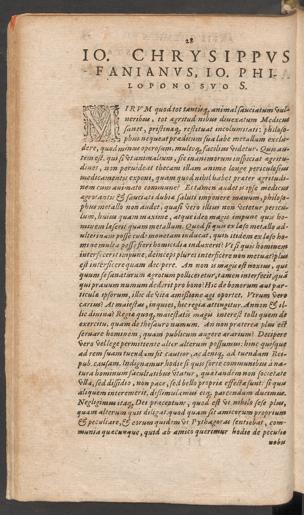 28
IO. CHRYSIPPVS
FANIANVS, IO. PHI-
LOPONO SVO S.
MIRVM quod tot tantisq, animal sauciatum vul-
neribus, tot ægritudinibus diuexatum Medicus
sanet, pristinæq, restituat incolumitati: philoso-
phus nequeat præditum sua labe metallum exclu-
dere, quod minus operosum, multoq, facilius videtur. Quin au-
tem est, qui si vt animalium, sic inanimorum inspiciat ægritu-
dines, non peruideat
medicamentis expone, quam quod nihil habet præter ægritudi-
nem cum animato commune? Et tamen audet is ipse medicus
ægrotantis & sauciati dubia saluti imponere manum, philoso-
phus metallo non audet, quasi vero illius non vertetur pericu-
lum, huius quam maxime, atque ideo magis impune quis ho-
minem læserit quam metallum. Quod si quis ex læso metallo ad-
ulterinam posse cudi monetam inducat, quin itidem ex læso ho-
mine multa posse fieri homicidia induxerit? Vt si quis hominem
interfecerit impune, deinceps plures interficere non metuat? plus
est interficere quam decipere. An non is magis est noxius, qui
quum se sanaturum ægrotum pollicetur, tamen interfecit, quam
qui prauum nummum dederit pro bono? Hic de bonorum aut par-
ticula ipsorum, illic de vita amissione agi oportet. Vtrum vero
carius? At maiestas, inquies, hic regia attingitur. Annon & il-
lic diuina? Regia quoq, maiestatis magis interest tolli quem de
exercitu, quam de thesauro nummum. At non præterea plus est
seruare hominem, quam publicum augere ærarium? Decipere
vero
ad rem suam tuendum sit cautior, ac deniq, ad tuendam Rei-
pub. causam. Indignamur hodie si quis forte communibus à na-
tura hominum facultatibus vtatur, quo tandem non societate
vlla, sed dissidio, non pace, sed bello propria effecta sunt: si quis
aliquem interemerit, dissimilamus eiq, parcendum ducimus.
Negligimus itaq, Dei præceptum, quod est vt nihilo sese plus,
quam alterum quis diligat. quod quam sit amicorum proprium
& peculiare, & eorum quidem vt Pythagoras sentiebat, com-
munia quæcunque, quid ab amico queremur hodie de peculio
nobis